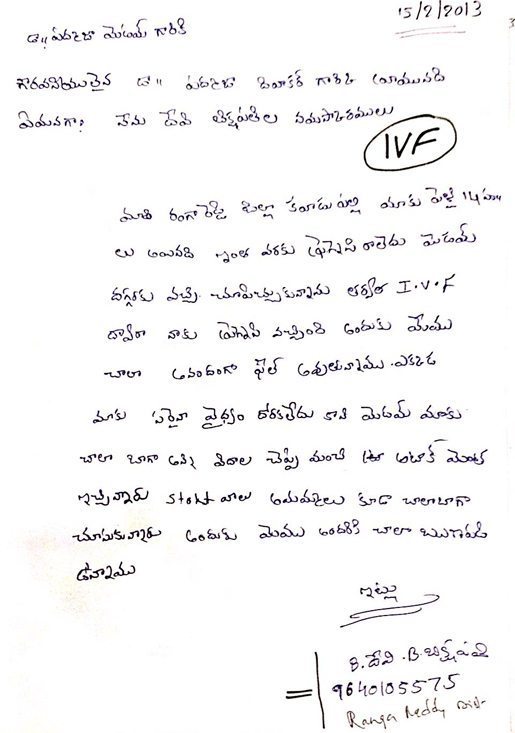 15/2/2013
డా,, పద్మజా మెడమ్ గారికి
గౌరవనియులైన డా,, పద్మజా దివాకర్ గారికి
ఏమనగా? నేను దేవి బిక్షపతిల నమస్కారములు
IVF
మాది రంగారెడ్డి జిల్లా మాకు పెళ్లి 14 సం,,
లు అయినది ఇంత వరకు ప్రెగ్నెన్సి రాలేదు మెడమ్
దగ్గరకు వచ్చి చూపిచ్చుకున్నాము తర్వాత I.V.F
ద్వారా నాకు ప్రెగ్నెన్సి వచ్చింది అందుకు మేము
చాలా ఆనందంగా ఫీల్ అవుతున్నాము. ఎక్కడ
మాకు సరైనా వైద్యం దొరకలేదు కాని మెడమ్ మాకు
చాలా బాగా అన్ని విదాల చెప్పి మంచి
ఇచ్చినారు వాలు అమ్మలు కూడా చాలాబాగా
చూసుకున్నారు అందుకు మెము అందరికి చాలా
ఉన్నాము
ఇట్లు
B.దేవి .B.బిక్షపతి
9640105575
Ranga Reddy Dist-